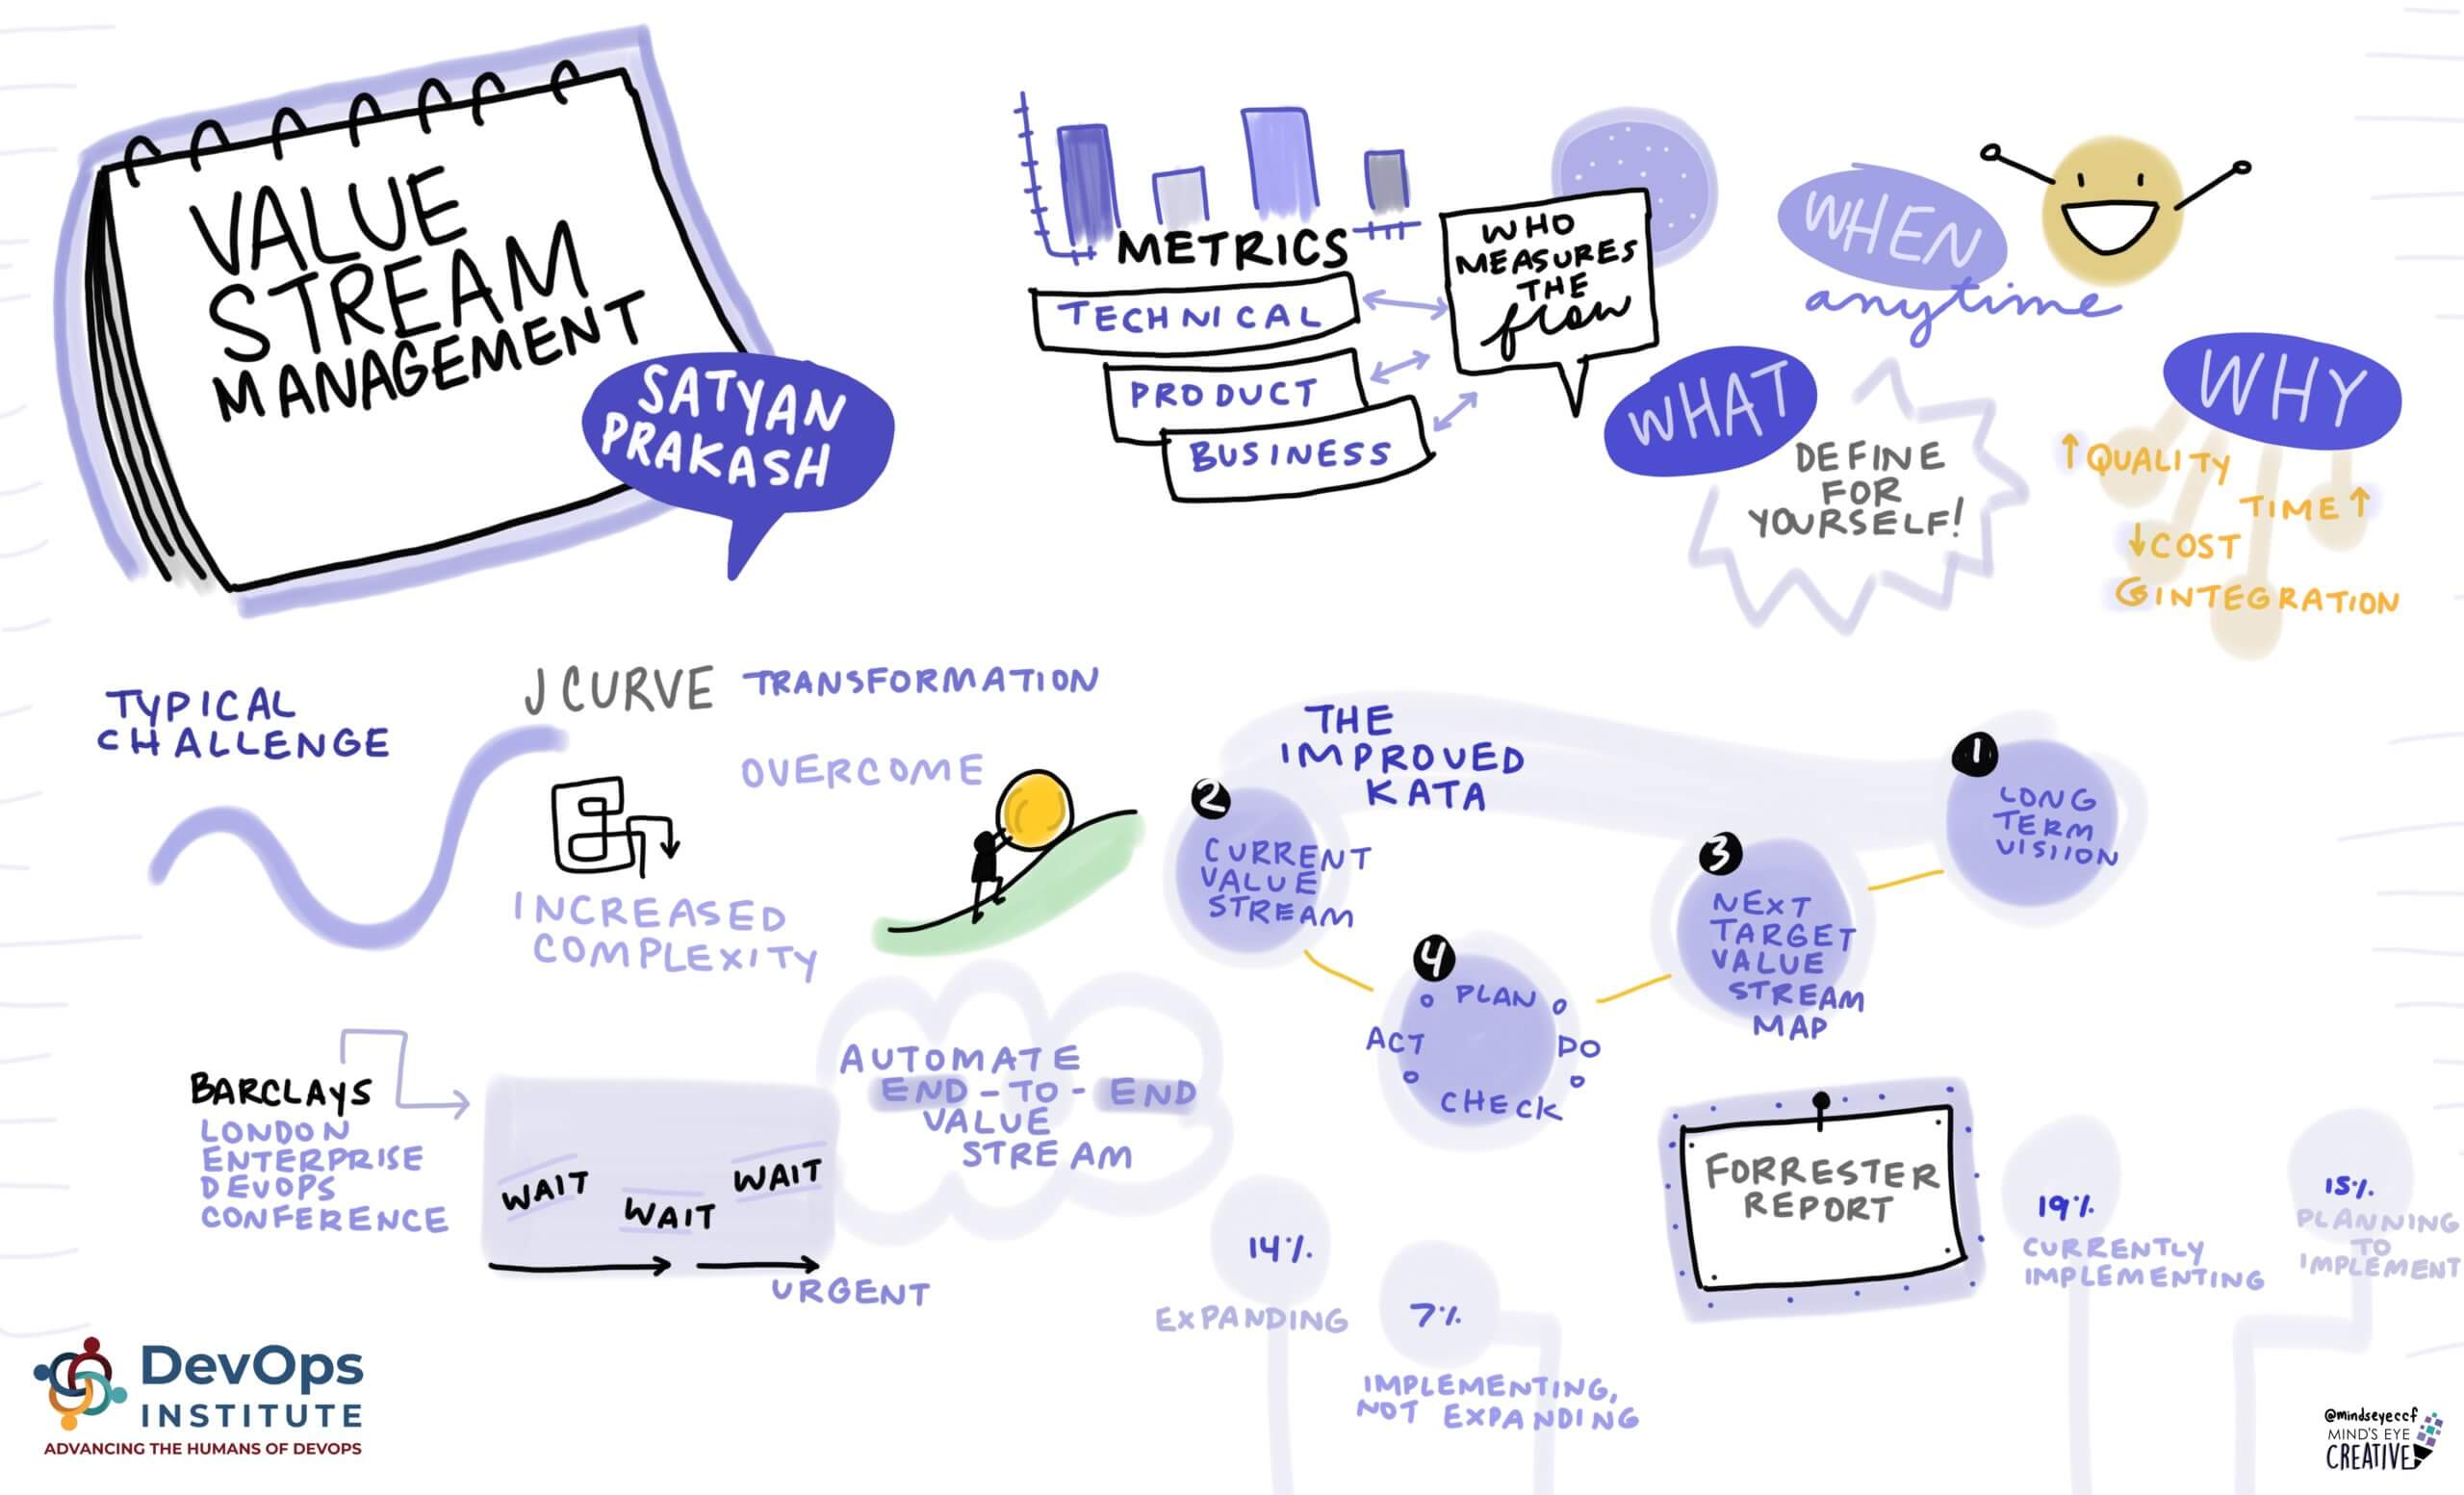 VALUE
STREAM
MANAGEMENT
SATYAN
PRAKASH
METRICS
TECHNICAL
PRODUCT
BUSINESS
WHO
MEASURES
THE
flow
WHEN
anytime
WHAT
DEFINE
FOR
YOURSELF!
WHY
↑ QUALITY
TIME ↑
↓ COST
INTEGRATION
TYPICAL
CHALLENGE
J CURVE TRANSFORMATION
OVERCOME
INCREASED
COMPLEXITY
THE
IMPROVED
KATA
1
LONG
TERM
VISIION
2
CURRENT
VALUE
STREAM
3
NEXT
TARGET
VALUE
STREAM
MAP
4
PLAN
DO
CHECK
ACT
BARCLAYS
LONDON
ENTERPRISE
DEVOPS
CONFERENCE
WAIT
WAIT
WAIT
URGENT
AUTOMATE
END-TO-END
VALUE
STREAM
14%
EXPANDING
7%
IMPLEMENTING,
NOT EXPANDING
FORRESTER
REPORT
19%
CURRENTLY
IMPLEMENTING
15%
PLANNING
TO
IMPLEMENT
DevOps
INSTITUTE
ADVANCING THE HUMANS OF DEVOPS
@mindseyeccf
MIND'S EYE
CREATIVE